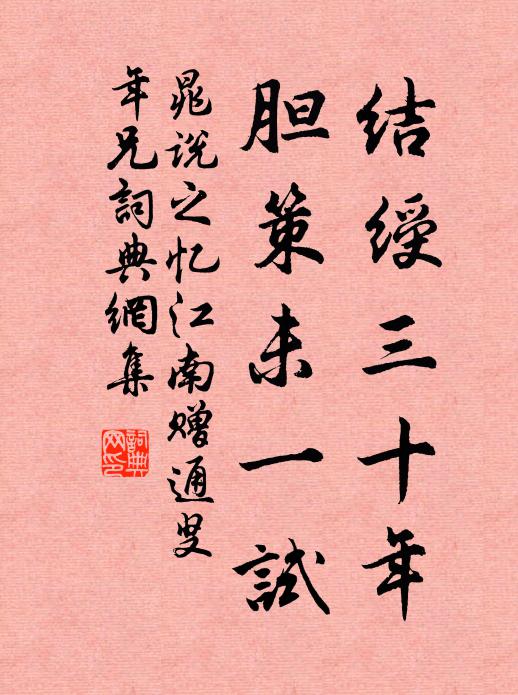 结绶三十年
胆策未一試
晁说之忆江南赠通叟
年兄詞典網集
詞典
网印